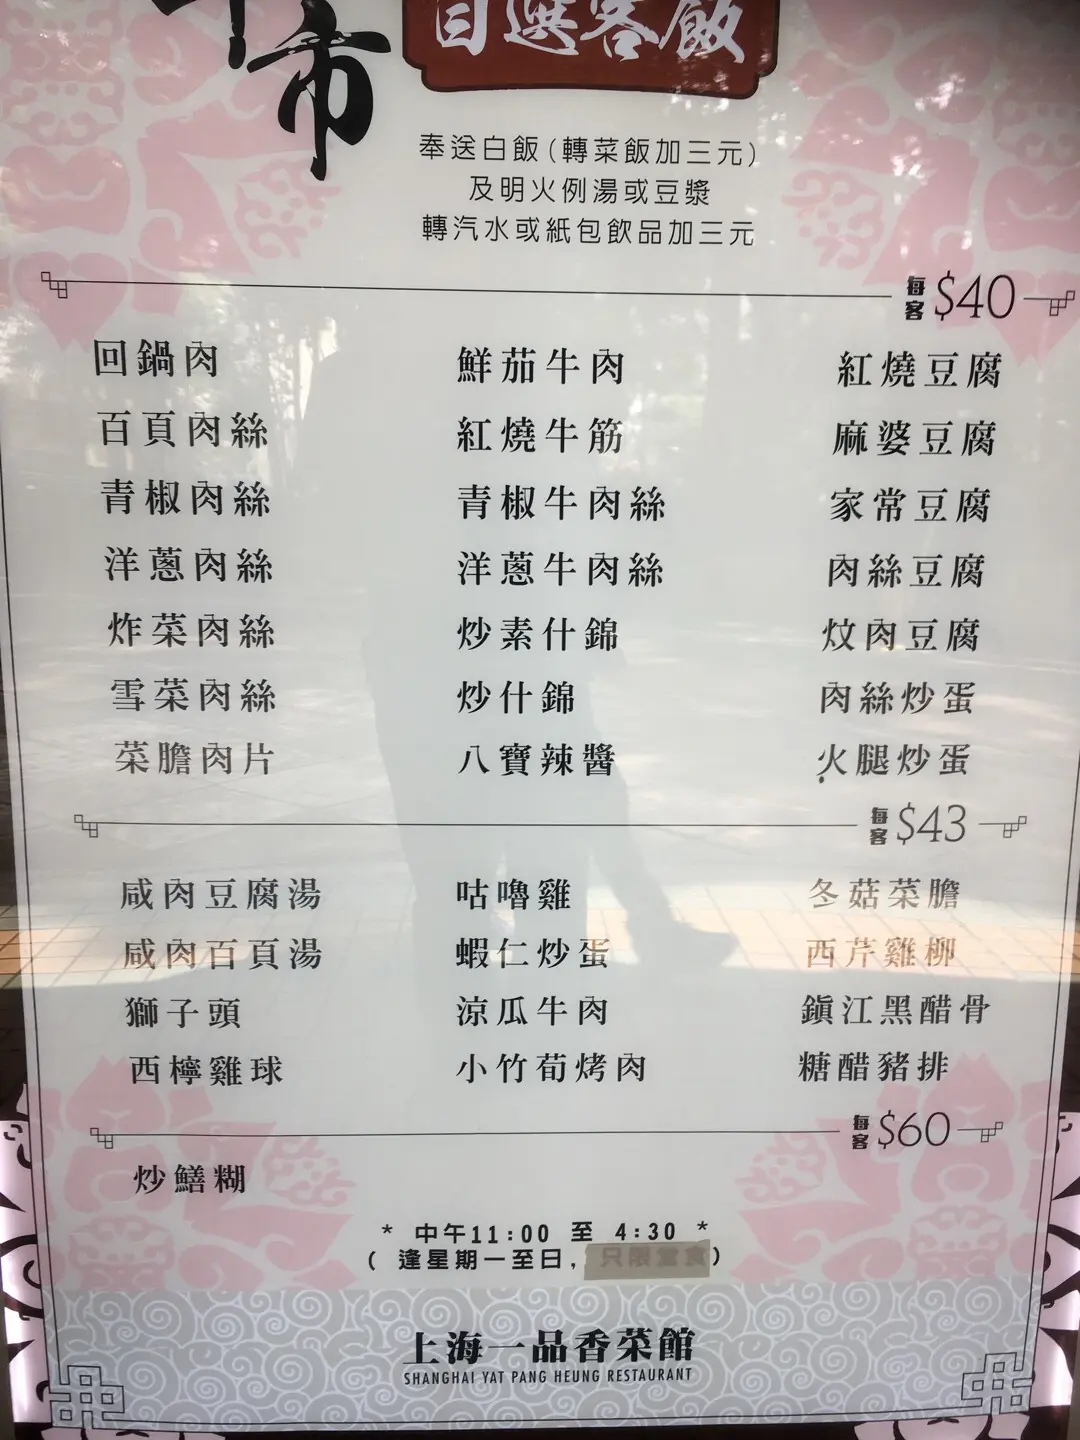 市
自選客飯
奉送白飯(轉菜飯加三元)
及明火例湯或豆漿
轉汽水或紙包飲品加三元
每客 $40
回鍋肉 鮮茄牛肉 紅燒豆腐
百頁肉絲 紅燒牛筋 麻婆豆腐
青椒肉絲 青椒牛肉絲 家常豆腐
洋蔥肉絲 洋蔥牛肉絲 肉絲豆腐
炸菜肉絲 炒素什錦 炆肉豆腐
雪菜肉絲 炒什錦 肉絲炒蛋
菜膽肉片 八寶辣醬 火腿炒蛋
每客 $43
咸肉豆腐湯 咕嚕雞 冬菇菜膽
咸肉百頁湯 蝦仁炒蛋 西芹雞柳
獅子頭 涼瓜牛肉 鎭江黑醋骨
西檸雞球 小竹荀烤肉 糖醋豬排
每客 $60
炒鱔糊
* 中午11:00 至 4:30 *
( 逢星期一至日, 只限堂食)
上海一品香菜館
SHANGHAI YAT PANG HEUNG RESTAURANT